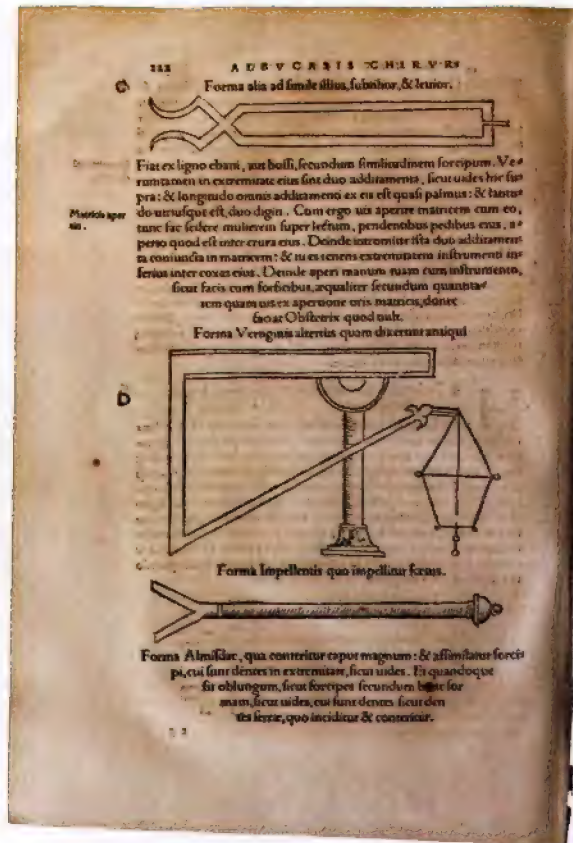 222 ALBVCASIS CHIRVR
C
Forma alia ad simile illius, subtilior, & leuior.
Fiat ex ligno ebani, aut bossi, secundum similitudinem forcipum. Ve=
runtamen in extremitate eius sint duo additamenta, sicut uides hic su=
pra: & longitudo omnis additamenti ex eis est quasi palmus: & latitu=
do utriusque est, duo digiti. Cum ergo uis aperire matricem cum eo,
Matricis aper
tunc fac sedere mulierem super lectum, pendentibus pedibus eius, a=
perto quod est inter crura eius. Deinde intromitte ista duo additamen=
ta coniuncta in matricem: & tu es tenens extremitatem instrumenti in=
ferius inter coxas eius. Deinde aperi manum tuam cum instrumento,
sicut facis cum forficibus, æqualiter secundum quantita=
tem quam uis ex apertione oris matricis, donec
faciat Obstetrix quod uult.
Forma Vertiginis alterius quam dixerunt antiqui
D
Forma Impellentis quo impellitur fœtus.
Forma Almisdac, qua conteritur caput magnum: & assimilatur forci
pi, cui sunt dentes in extremitate, sicut uides. Et quandoque
fit oblongum, sicut forcipes secundum hanc for
mam, sicut uides, cui sunt dentes sicut den
tes serræ, quo inciditur & conteritur.